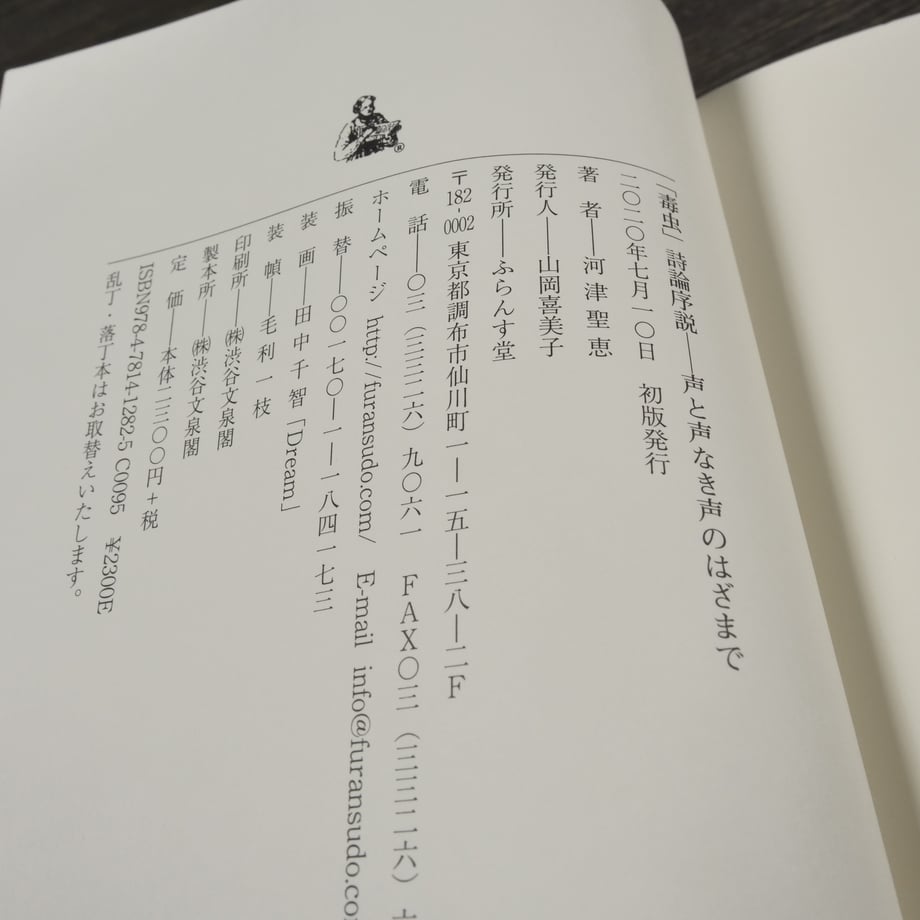 「毒虫」詩論序説――声と声なき声のはざまで
二〇二〇年七月一〇日 初版発行
著 者――河津聖恵
発行人――山岡喜美子
発行所――ふらんす堂
〒182-0002 東京都調布市仙川町一―一五―三八―二F
電 話――〇三(三三二六)九〇六一 FAX〇三(三三二六)
ホームページ http://furansudo.com/ E-mail info@furansudo.co
振 替――〇〇一七〇―一―一八四一七三
装 画――田中千智「Dream」
装 幀――毛利一枝
印刷所――㈱渋谷文泉閣
製本所――㈱渋谷文泉閣
定 価――本体二三〇〇円+税
ISBN978-4-7814-1282-5 C0095 ¥2300E
乱丁・落丁本はお取替えいたします。
®